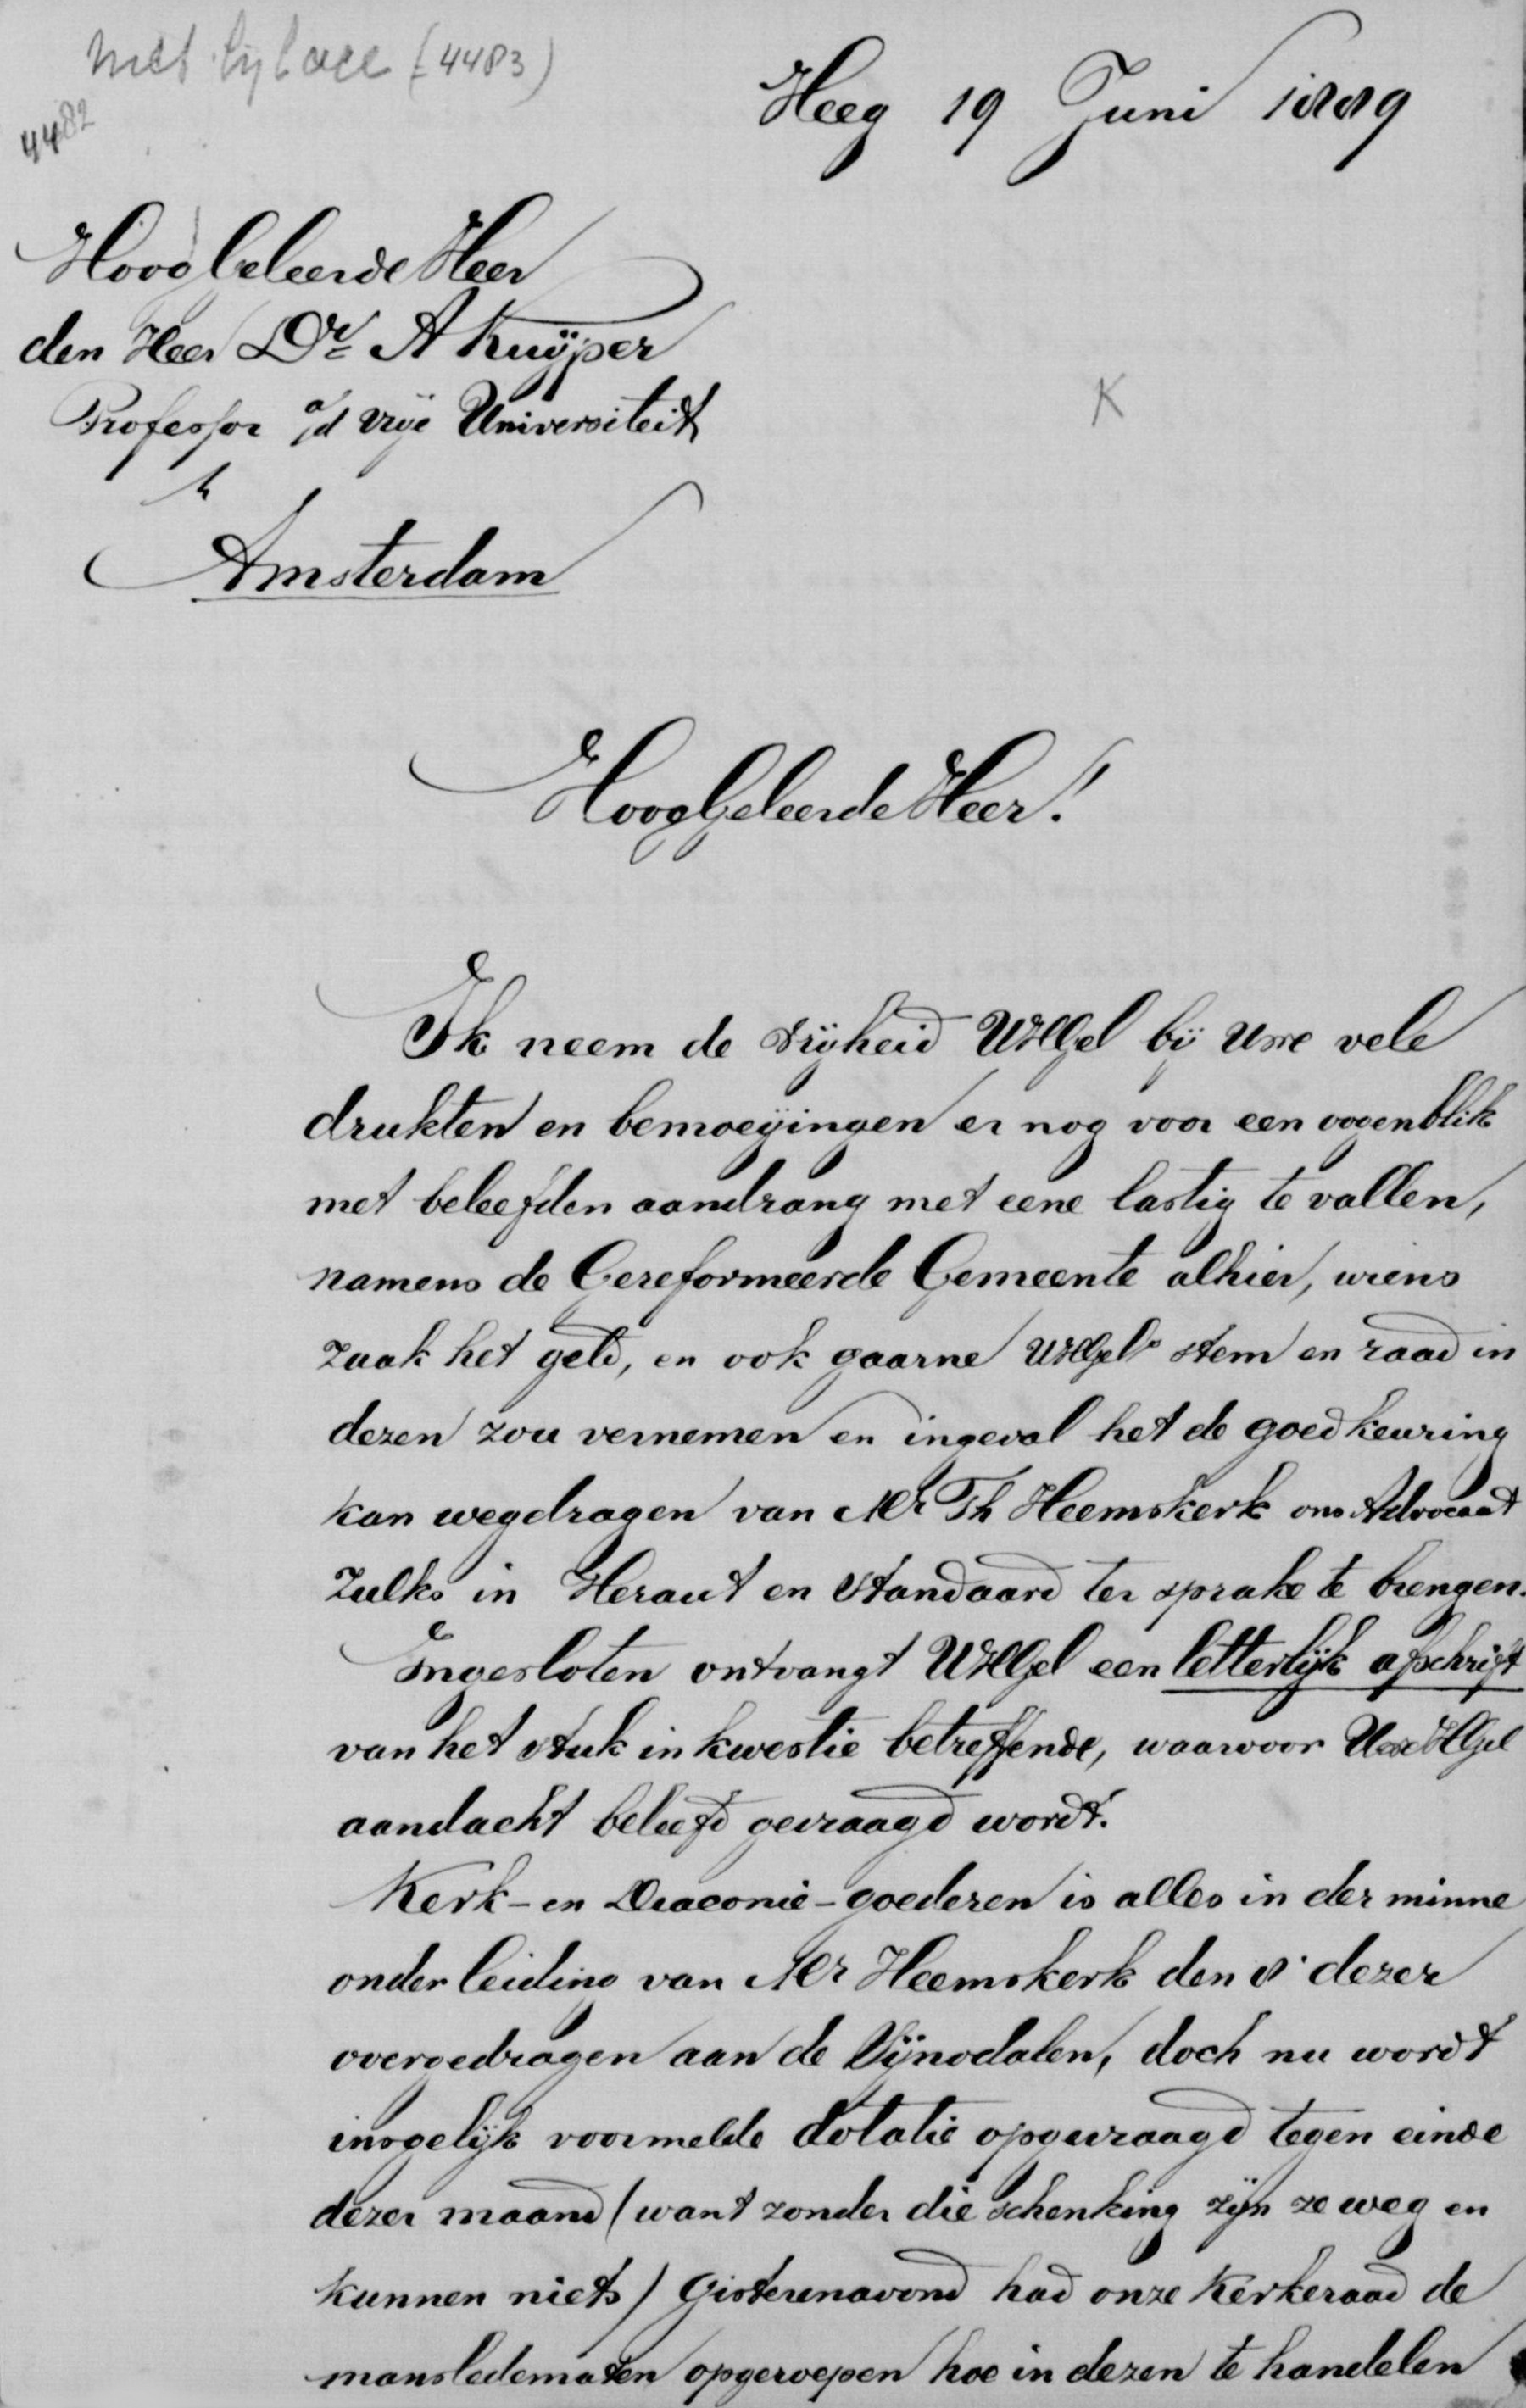 met bijlage (4483)
4482
Heeg 19 Juni 1889
HoogGeleerde Heer
den Heer Dr A Kuÿper
Professor a/d vrije Universiteit
K
Amsterdam
HoogGeleerde Heer!
Ik neem de vrijheid UHGel bij Uwe vele
drukten en bemoeijingen er nog voor een oogenblik
met beleefden aandrang met eene lastig te vallen,
namens de Gereformeerde Gemeente alhier, wiens
zaak het geld, en ook gaarne UHGels stem en raad in
dezen zou vernemen en ingeval het de goedkeuring
kan wegdragen van Mr Th Heemskerk ons Advocaat
zulks in Heraut en Standaard ter sprake te brengen.
Ingesloten ontvangt UHGel een letterlijk afschrift
van het stuk in kwestie betreffende, waarvoor Uwe HGel
aandacht beleefd gevraagd wordt.
Kerk- en Diaconie-goederen is alles in der minne
onder leiding van Mr Heemskerk den 8 dezer
overgedragen aan de Sijnodalen, doch nu wordt
insgelijk voormelde dotatie opgevraagd tegen einde
dezer maand (want zonder die schenking zijn ze weg en
kunnen niets) Gisterenavond had onze Kerkeraad de
mansledematen opgeroepen hoe in dezen te handelen